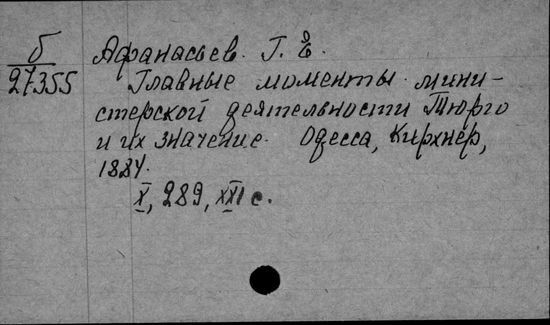 б
27355
Афанасьев. Г. Е.
Главные моменты мини-
стерской деятельности Тюрго
и их значение. Одесса, Кирхнер,
1884.
X, 289, XXI с.